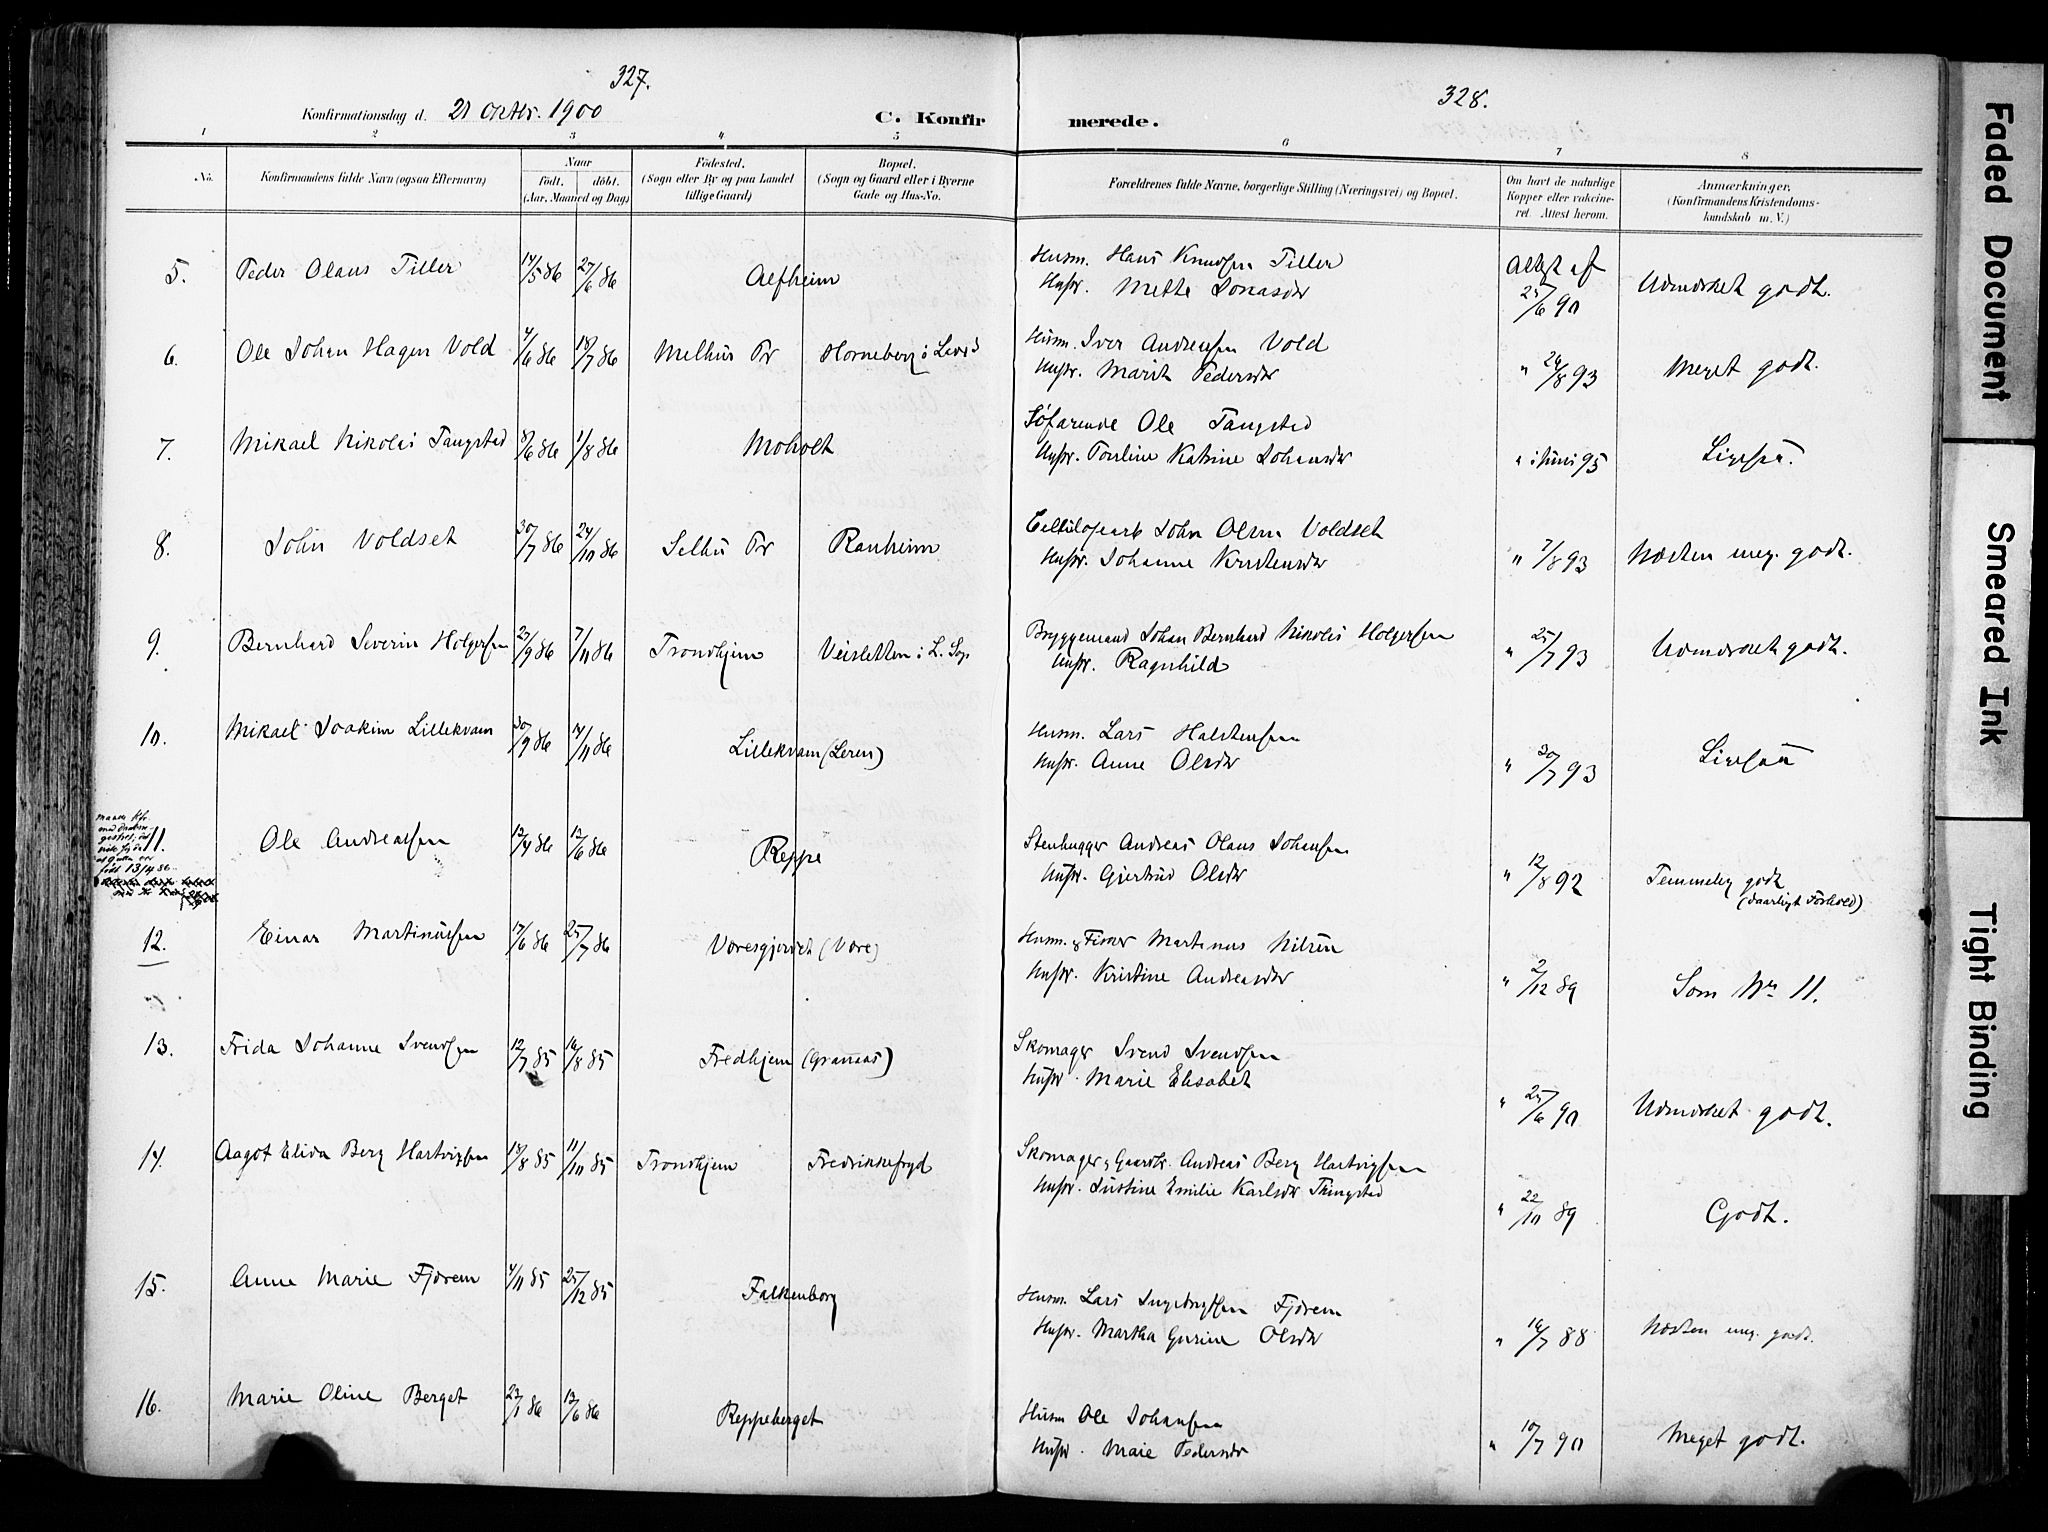 327.
Konfirmationsdag d. 21 Oktbr. 1900
C. Konfir
328.
merede.
1 2 3 4 5 6 7 8
No.
Konfirmandens fulde Navn (ogsaa Efternavn)
Naar
födt. döbt.
(Aar, Maaned og Dag)
Födested.
(Sogn eller By og paa Landet
tillige Gaard)
Bopæl.
(Sogn og Gaard eller i Byerne
Gade og Hus-No.
Forældrenes fulde Navne, borgerlige Stilling (Næringsvei) og Bopæl.
Om havt de naturlige
Kopper eller vakcine-
ret. Attest herom.
Anmærkninger.
(Konfirmandens Kristendoms-
kundskab m. V.)
5. Peder Olaus Tiller 14/5 86 27/6 86 Alfheim
Husm. Hans Knudsen Tiller
Hustr. Mette Jonasdr
Attest af
25/6 90
Udmærket godt.
6. Ole Johan Hagen Vold 4/6 86 18/7 86 Melhus Pr Horneberg i
Husm. Iver Andreassen Vold
Hustr. Marit Pedersdr
" 24/8 93 Meget godt.
7. Mikael Nikolai Tangstad 8/6 86 1/8 86 Moholt
Söfarende Ole Tangstad
Hustr. Pauline Katrine Johansdr
" i Juni 95 Ligesaa.
8. John Voldset 30/7 86 24/10 86 Selbu Pr Ranheim
John Olsen Voldset
Hustr. Johanne Kristensdr
" 7/8 93 Næsten meg. godt.
9. Bernhard Severin Holgersen 27/9 86 7/11 86 Trondhjem Veisletten i L. Sogn
Bryggemand Johan Bernhard Nikolai Holgersen
Hustr. Ragnhild
" 25/7 93 Udmærket godt.
10. Mikael Joakim Lillekvam 30/9 86 14/11 86 Lillekvam (Leren)
Husm. Lars Halstensen
Hustr. Anne Olsdr
" 30/7 93 Ligesaa
11. Ole Andreassen 12/4 86 12/6 86 Reppe
född 13/4 86
Stenhugger Andreas Olaus Johansen
Hustr. Gjertrud Olsdr
" 12/8 92 Temmelig godt
(daarligt Forhold)
12. Einar Martinussen 17/6 86 25/7 86 Væresgjerdet (Være)
Husm. & Fisker Martinus Nilsen
Hustr. Kristine Andreasdr
" 2/12 89 Som No 11.
13. Frida Johanne Svendsen 12/7 85 16/8 85 Fredhjem (Granaas)
Skomager Svend Svendsen
Hustr. Marie Elisabet
" 25/6 90 Udmærket godt.
14. Aagot Elida Berg Hartvigsen 17/8 85 11/10 85 Trondhjem Fredrikkefryd
Skomager, Gaardbr. Andreas Berg Hartvigsen
Hustr. Justine Emilie Karlsdr Thingstad
" 22/10 89 Godt.
15. Anne Marie Fjærem 4/11 85 25/12 85 Falkenborg
Husm. Lars Ingebrigtsen Fjærem
Hustr. Martha Gurine Olsdr
" 16/7 88 Næsten meg. godt.
16. Marie Oline Berget 23/1 86 13/6 86 Reppeberget
Husm Ole Johansen
Hustr. Marie Pedersdr
" 10/7 90 Meget godt.
Faded Document
Smeared Ink
Tight Binding